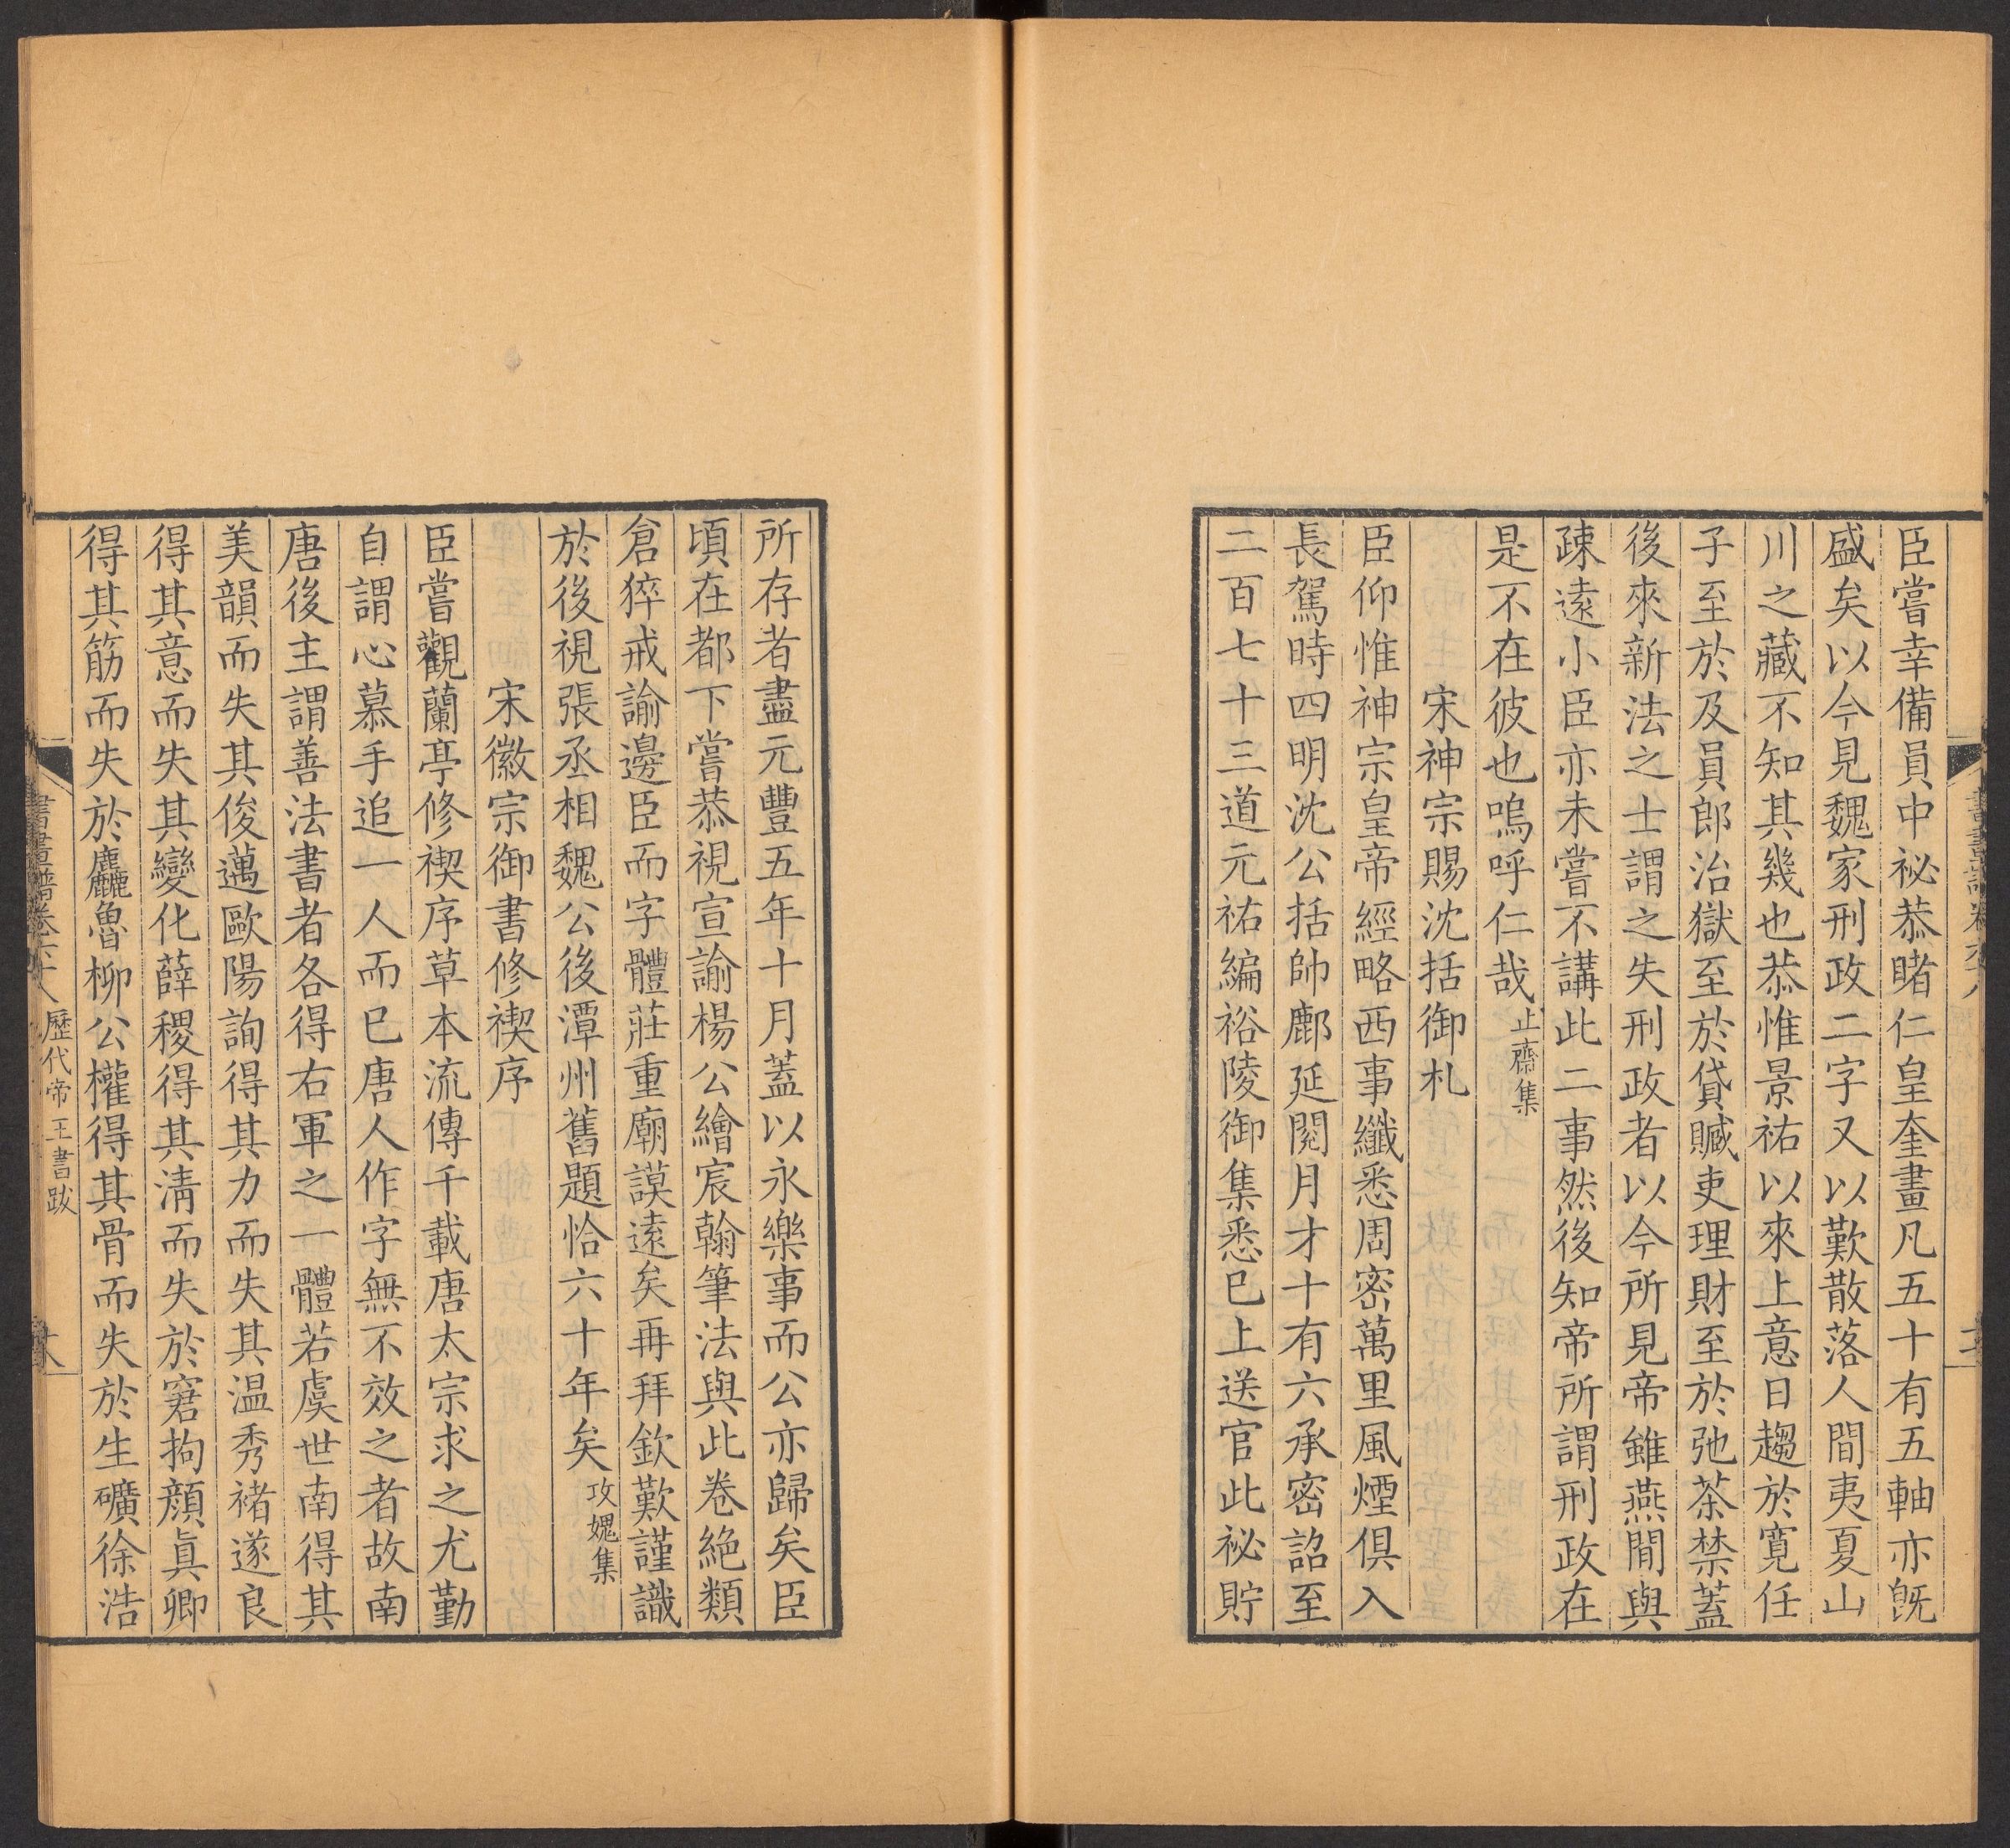 臣嘗幸備員中祕恭睹仁皇奎畫凡五十有五軸亦旣
盛矣以今見魏家刑政二字又以歎散落人間夷夏山
川之藏不知其幾也恭惟景祐以來上意日趨於寬任
子至於及員郎治獄至於貸贓吏理財至於弛茶禁蓋
後來新法之士謂之失刑政者以今所見帝雖燕閒與
疎遠小臣亦未嘗不講此二事然後知帝所謂刑政在
是不在彼也嗚呼仁哉 止齋集
宋神宗賜沈括御札
臣仰惟神宗皇帝經略西事纖悉周密萬里風煙俱入
長駕時四明沈公括帥鄜延閱月才十有六承密詔至
二百七十三道元祐編裕陵御集悉巳上送官此祕貯
所存者盡元豐五年十月蓋以永樂事而公亦歸矣臣
頃在都下嘗恭視宣諭楊公繪宸翰筆法與此卷絶類
倉猝戒諭邊臣而字體莊重廟謨遠矣再拜欽歎謹識
於後視張丞相魏公後潭州舊題恰六十年矣 攻媿集
宋徽宗御書修禊序
臣嘗觀蘭亭修禊序草本流傳千載唐太宗求之尤勤
自謂心慕手追一人而巳唐人作字無不效之者故南
唐後主謂善法書者各得右軍之一體若虞世南得其
美韻而失其俊邁歐陽詢得其力而失其温秀褚遂良
得其意而失其變化薛稷得其淸而失於窘拘顔眞卿
得其筋而失於麤魯柳公權得其骨而失於生礦徐浩
書畫譜卷六十八 歷代帝王書跋 十八